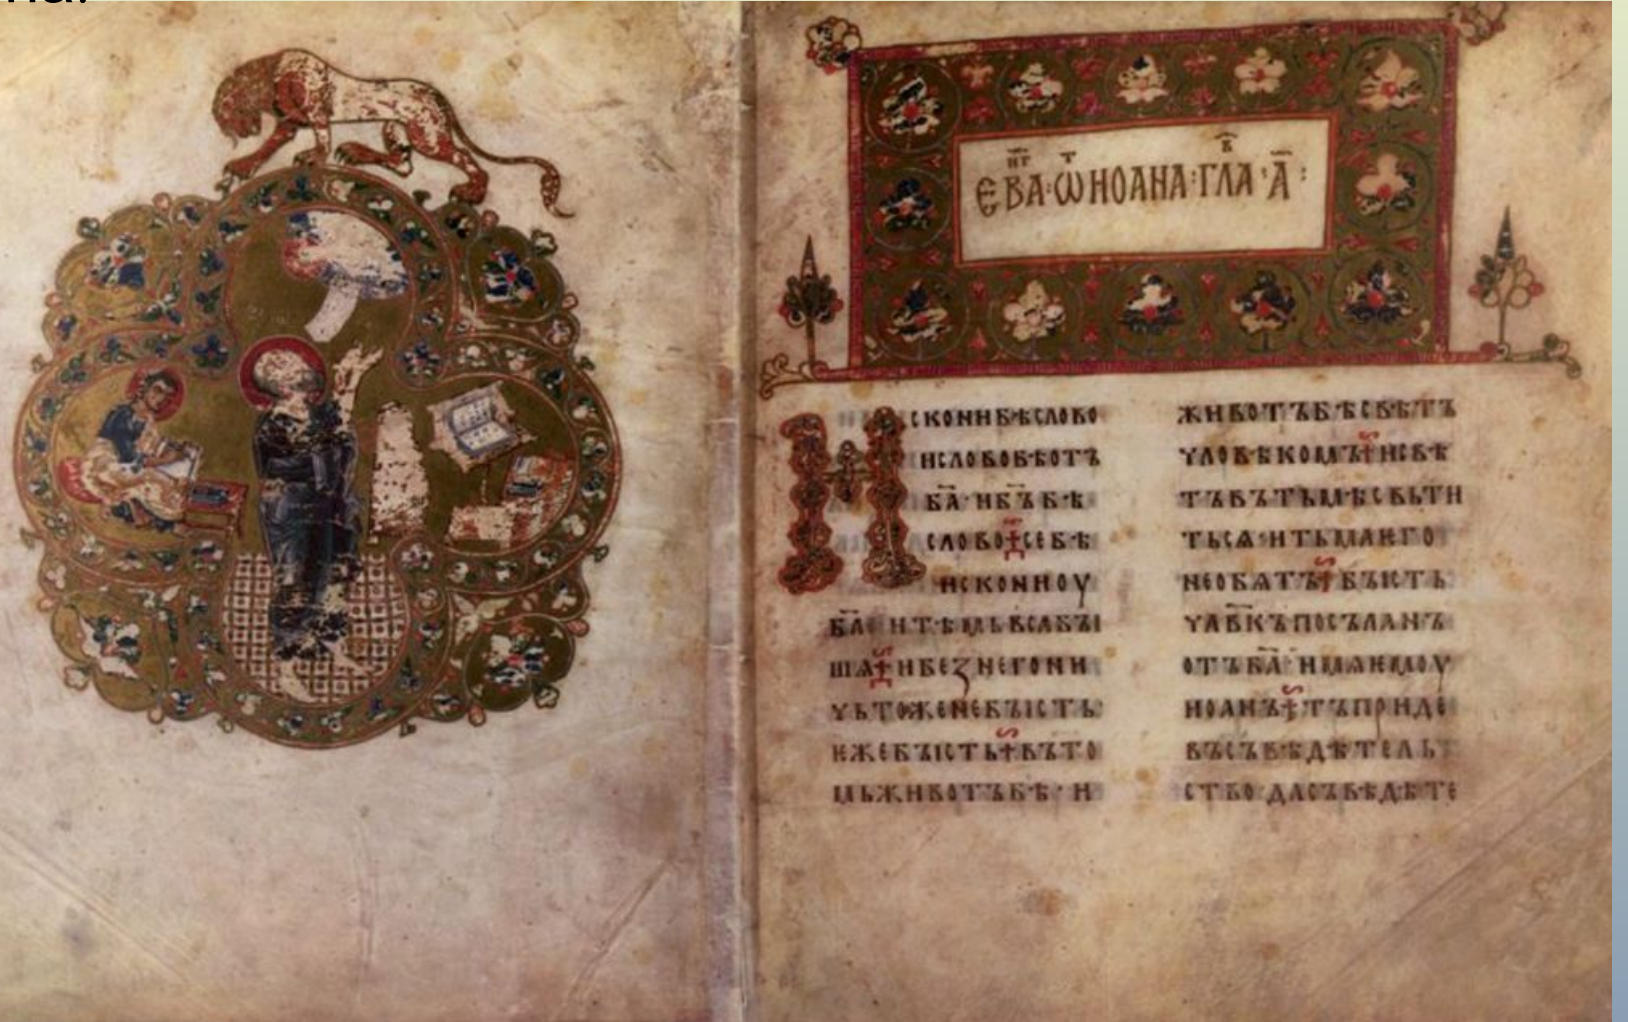 ЕВАⷩ҇ⷢ·Ѡⷮ ИОАНА·ГЛАⷡ҇·А҃:
ИСКОНИБѢСЛОВО
ИСЛОВОБѢОТЪ
БА҃·ИБЪ҃БѢ
СЛОВО·СЕБѢ
ИСКОНИОУ
БА҃ ИТѢМЬВСѦБЪІ
ШѦ·ИБЕꙀНЕГОНИ
ЧЬТОЖЕНЕБЪІСТЬ·
ѤЖЕБЪІСТЬ·ВЪТО
МЬЖИВОТЪБѢ·И
ЖИВОТЪБѢСВѢТЪ
ЧЛОВѢКОМЪ·ИСВѢ
ТЪВЪТЬМѢСВЬТИ
ТЬСѦ·ИТЬМАѤГО
НЕОБѦТЪ·БЪІСТЬ
ЧЛВ҃КЪПОСЪЛАНЪ
ОТЪБА҃·ИМѦѤМОУ
ИОАНЪ·ТЪПРИДЕ
ВЪСЪВѢДѢТЕЛЬ
СТВО·ДАСЪВѢДѢТЕ